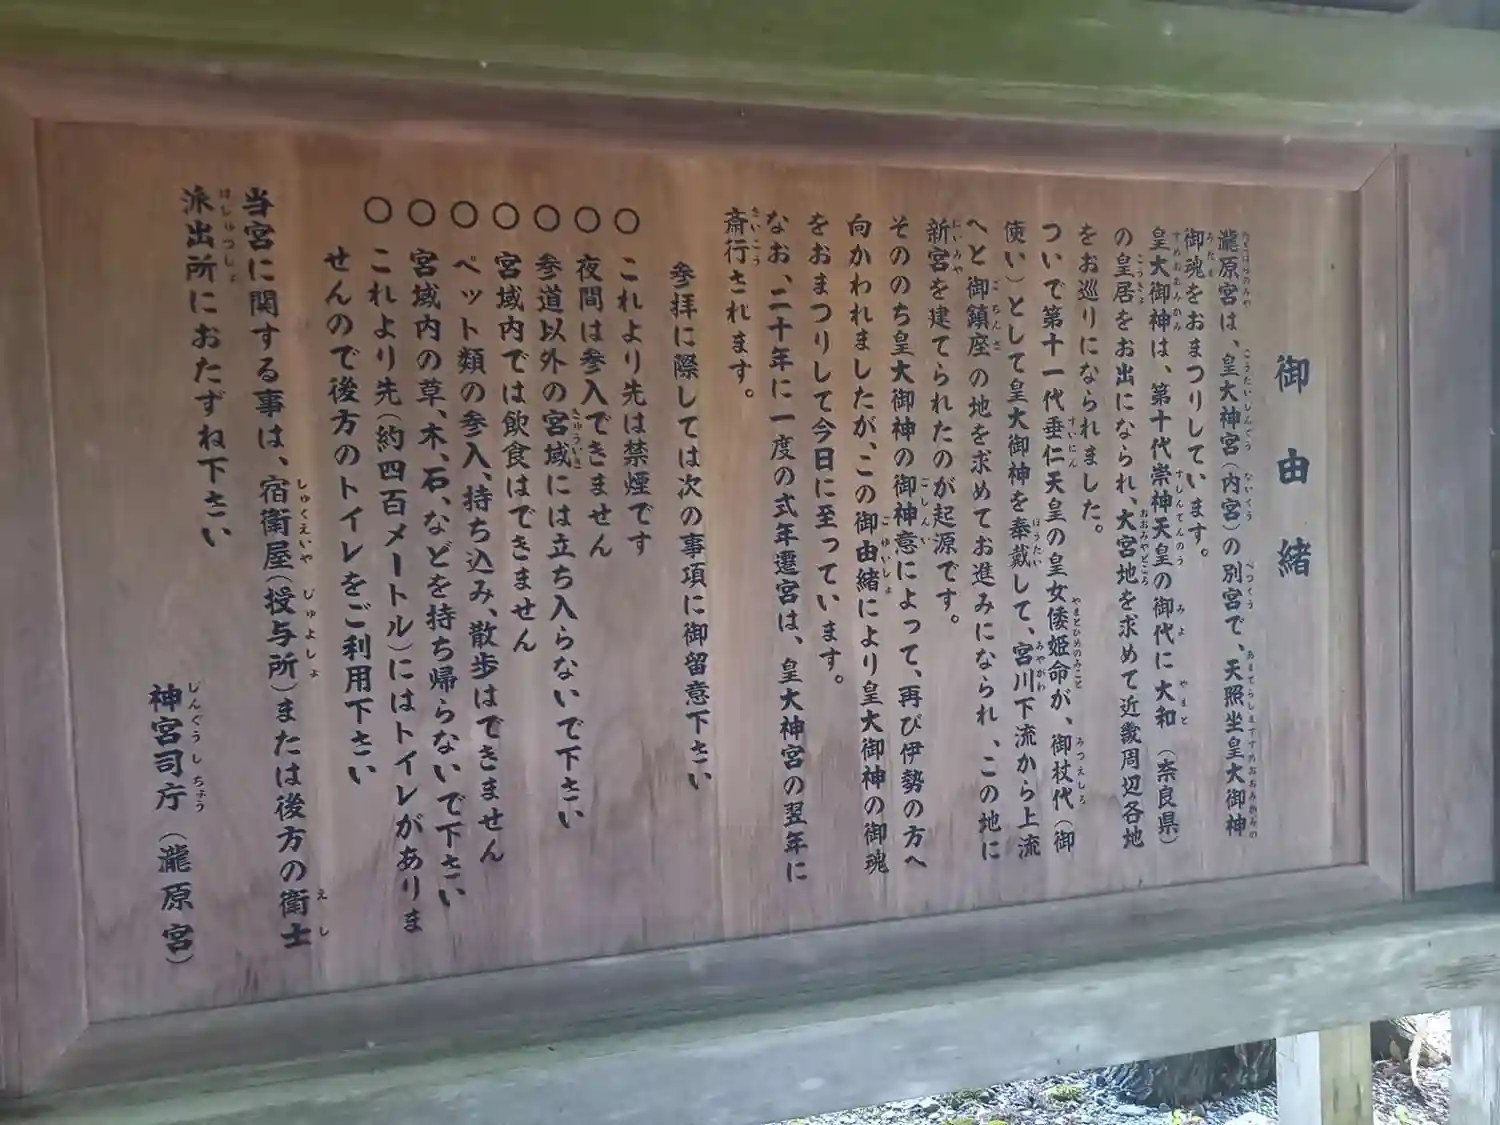 御由緒
瀧原宮は、皇大神宮（内宮）の別宮で、天照坐皇大御神
御魂をおまつりしています。
皇大御神は、第十代崇神天皇の御代に大和（奈良県）
の皇居をお出になられ、大宮地を求めて近畿周辺各地
をお巡りになられました。
ついで第十一代垂仁天皇の皇女倭姫命が、御杖代（御
使い）として皇大御神を奉戴して、宮川下流から上流
へと御鎮座の地を求めてお進みになられ、この地に
新宮を建てられたのが起源です。
そののち皇大御神の御神意によって、再び伊勢の方へ
向かわれましたが、この御由緒により皇大御神の御魂
をおまつりして今日に至っています。
なお、二十年に一度の式年遷宮は、皇大神宮の翌年に
斎行されます。
参拝に際しては次の事項に御留意下さい
○これより先は禁煙です
○夜間は参入できません
○参道以外の宮域には立ち入らないで下さい
○宮域内では飲食はできません
○ペット類の参入、持ち込み、散歩はできません
○宮域内の草、木、石、などを持ち帰らないで下さい
○これより先（約四百メートル）にはトイレがありま
せんので後方のトイレをご利用下さい
当宮に関する事は、宿衛屋（授与所）または後方の衛士
派出所におたずね下さい
神宮司庁（瀧原宮）